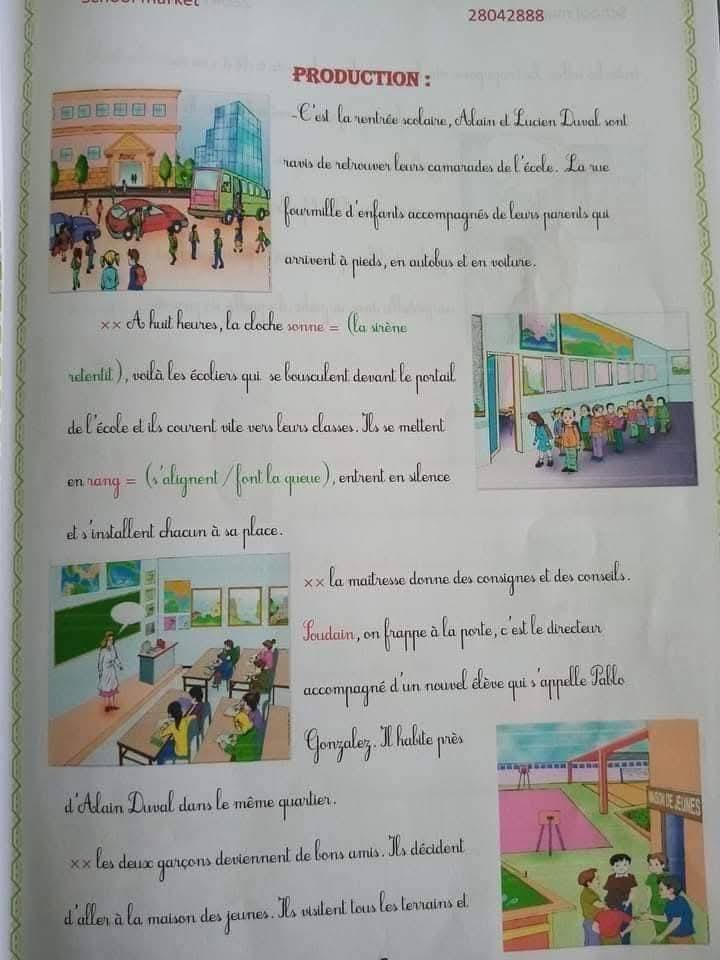 School market
28042888
PRODUCTION :
-C'est la rentrée scolaire, Alain et Lucien Duval sont
ravis de retrouver leurs camarades de l'école. La rue
fourmille d'enfants accompagnés de leurs parents qui
arrivent à pieds, en autobus et en voiture.
×× A huit heures, la cloche sonne = (la sirène
retentit), voilà les écoliers qui se bousculent devant le portail
de l'école et ils courent vite vers leurs classes. Ils se mettent
en rang = (s'alignent / font la queue), entrent en silence
et s'installent chacun à sa place.
×× la maîtresse donne des consignes et des conseils.
Soudain, on frappe à la porte, c'est le directeur
accompagné d'un nouvel élève qui s'appelle Pablo
Gonzalez. Il habite près
d'Alain Duval dans le même quartier.
MAISON DE JEUNES
×× les deux garçons deviennent de bons amis. Ils décident
d'aller à la maison des jeunes. Ils visitent tous les terrains et